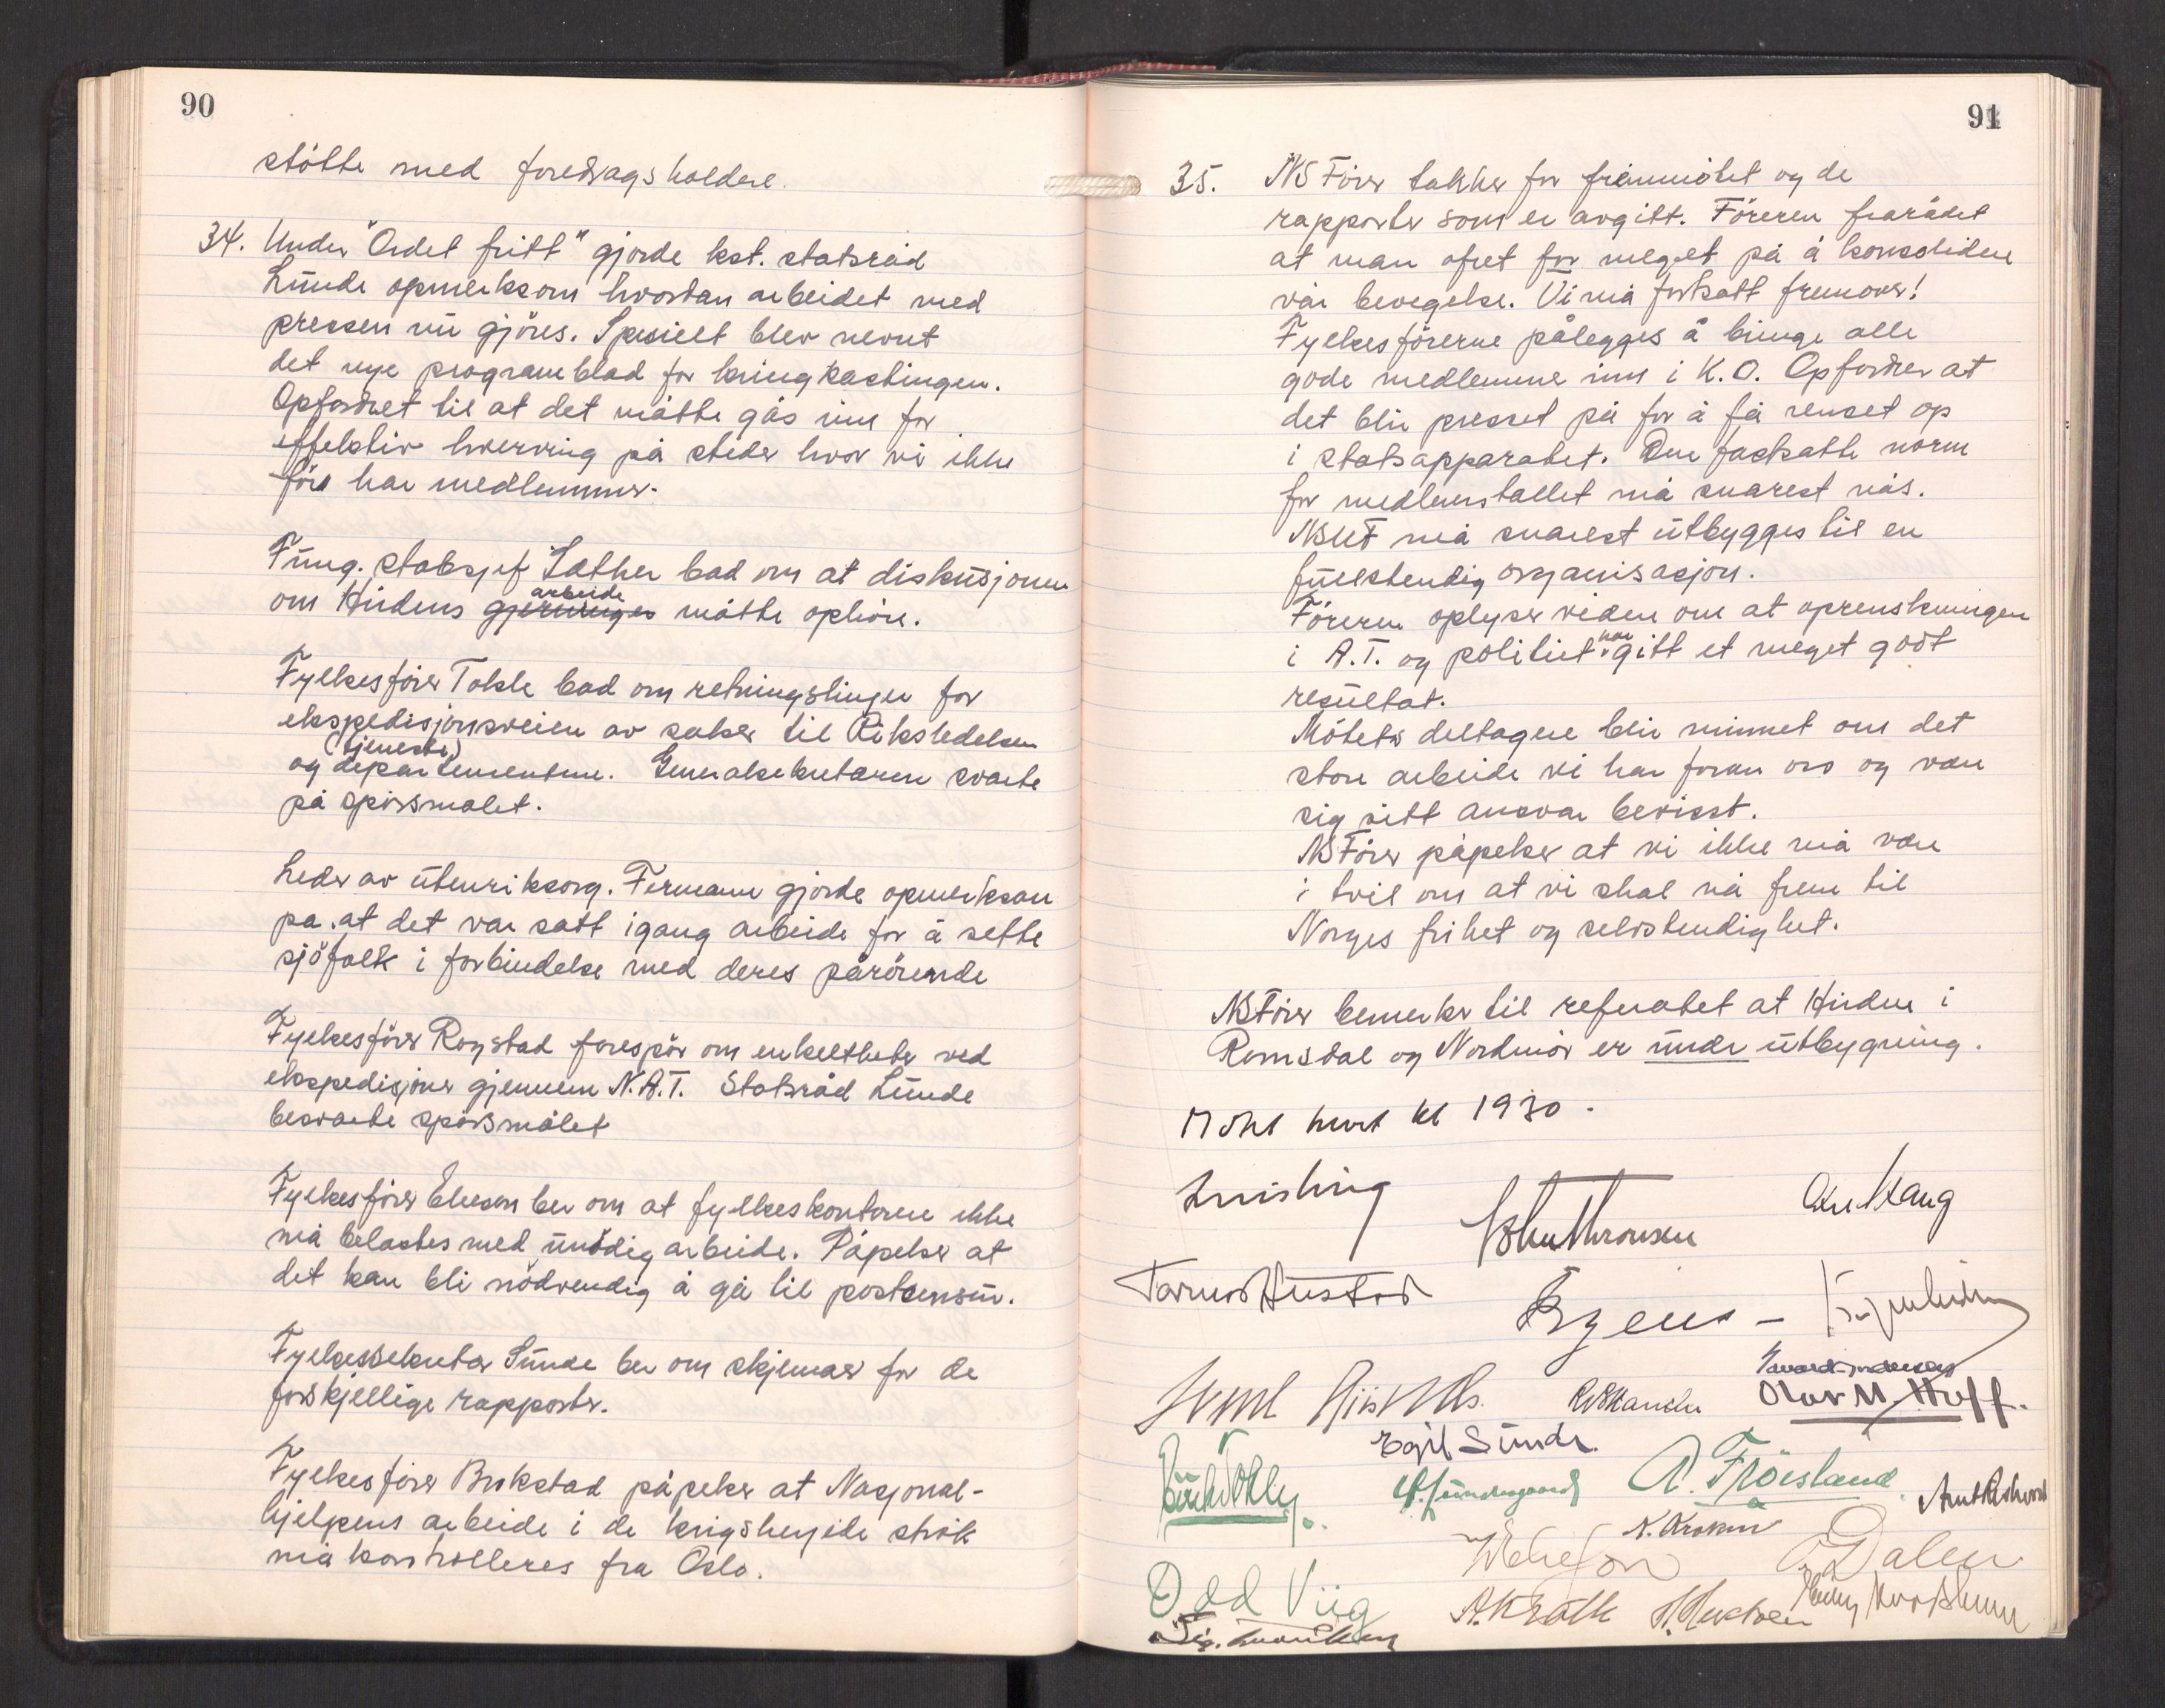 90
støtte med foredragsholdere.
34. Under "Ordet fritt" gjorde kst. statsråd
Lunde opmerksom hvordan arbeidet med
pressen nu gjøres. Spesielt blev nevnt
det nye programblad for kringkastingen.
Opfordret til at det måtte gås inn for
effektiv hverving på steder hvor vi ikke
før har medlemmer.
Fung. stabsjef Sæther bad om at diskusjonen
arbeide
om Hirdens gjerninger måtte ophøre.
Fylkesfører Tokle bad om retningslinjer for
ekspedisjonsveien av saker til Riksledelsen
(tjeneste)
og departementene. Generalsekretæren svarte
på spørsmålet.
Leder av utenriksorg. Fermann gjorde opmerksom
på at det var satt igang arbeide for å sette
sjøfolk i forbindelse med deres pårørende
Fylkesfører Rogstad forespør om enkeltheter ved
ekspedisjoner gjennem N.A.T. Statsråd Lunde
besvarte spørsmålet
Fylkesfører Elieson ber om at fylkeskontorene ikke
må belastes med unødig arbeide. Påpeker at
det kan bli nødvendig å gå til postsensur.
Fylkessekretær Sunde ber om skjemaer for de
forskjellige rapporter.
Fylkesfører Brukstad påpeker at Nasjonal-
hjelpens arbeide i de krigsherjede strøk
må kontrolleres fra Oslo.
91
35. NS Fører takker for fremmøtet og de
rapporter som er avgitt. Føreren frarådet
at man ofret for meget på å konsolidere
vår bevegelse. Vi må fortsatt fremover!
Fylkesførerne pålegges å bringe alle
gode medlemmer inn i K.O. Opfordrer at
det blir presset på for å få renset op
i statsapparatet. Den fastsatte norm
for medlemstallet må snarest nås.
NSUF må snarest utbygges til en
fullstendig organisasjon.
Føreren oplyser videre om at oprenskningen
har
i A.T. og politiet gitt et meget godt
resultat.
Møtets deltagere blir minnet om det
store arbeide vi har foran oss og være
sig sitt ansvar bevisst.
NS Fører påpeker at vi ikke må være
i tvil om at vi skal nå frem til
Norges frihet og selvstendighet.
NS Fører bemerker til referatet at Hirden i
Romsdal og Nordmør er under utbygning.
Møtet hevet kl 1930.
Quisling
Axel Aass
Tormod Hustad
Olav M. Hoff.
Egil Sunde.
A. Frøisland
Dalen
Odd Viig